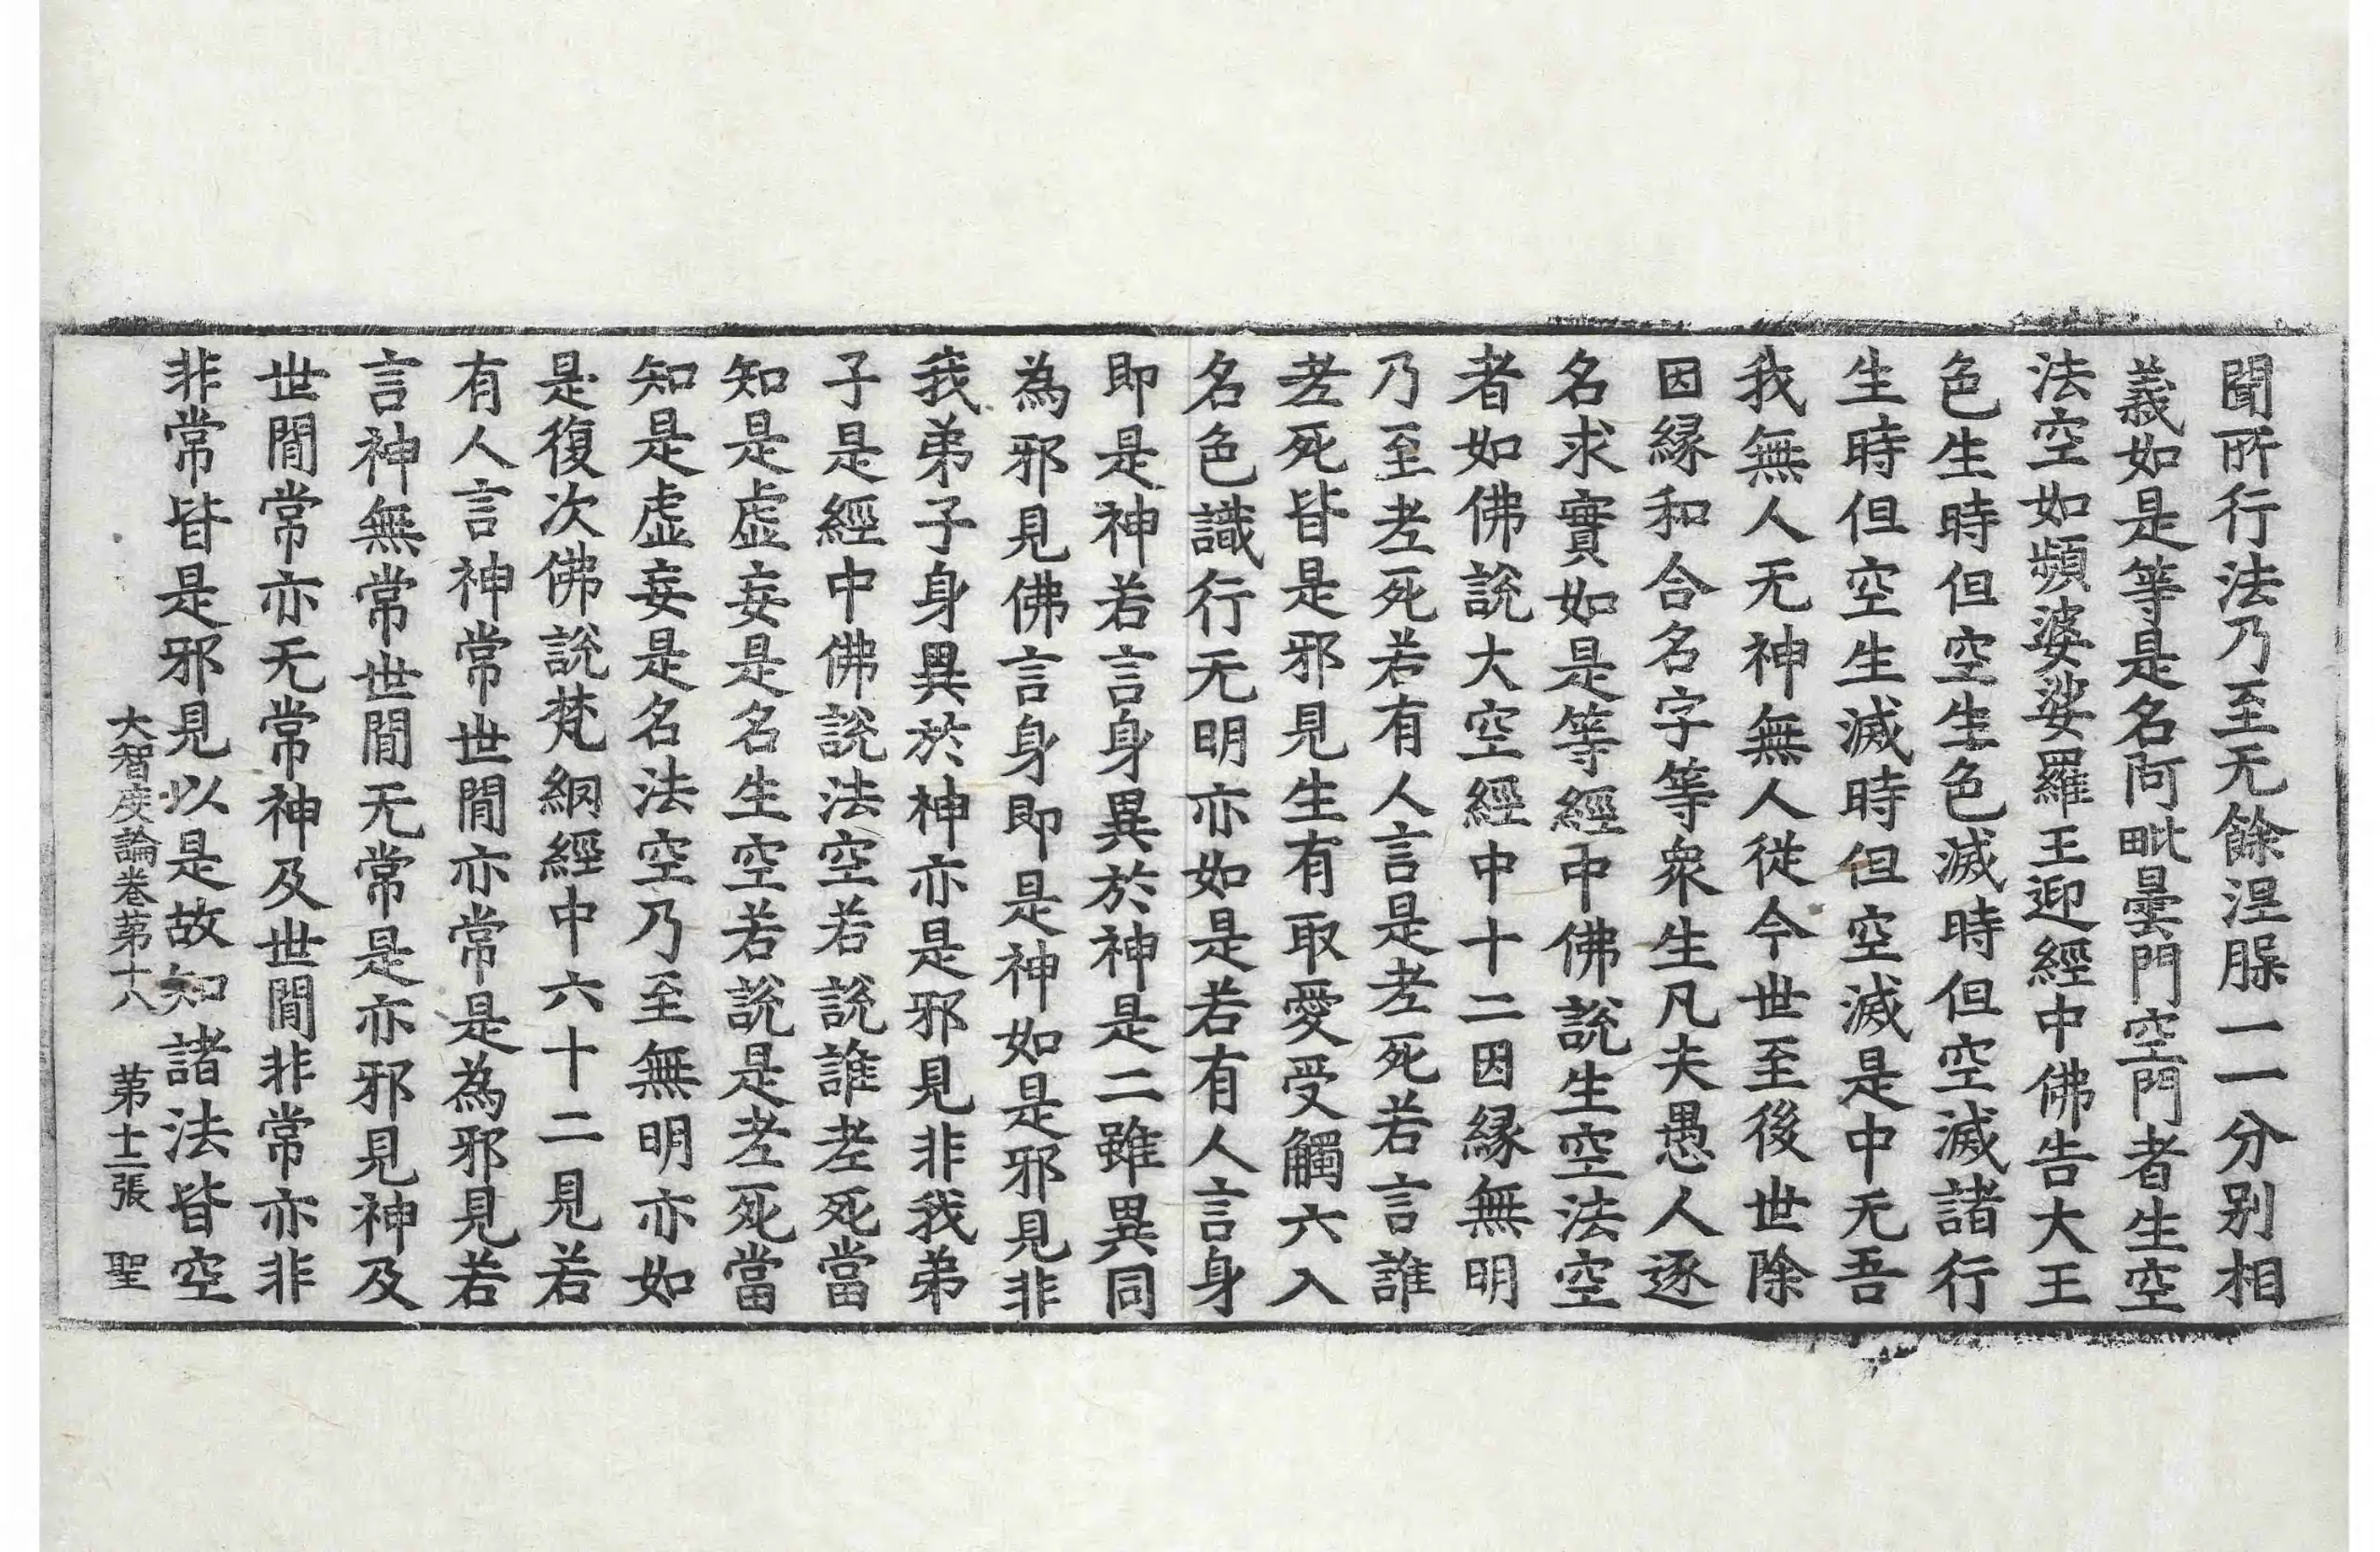 聞所行法乃至无餘涅脲一一分別相
義如是等是名阿毗曇門空門者生空
法空如頻婆娑羅王迎經中佛告大王
色生時但空生色滅時但空滅諸行
生時但空生滅時但空滅是中无吾
我無人无神無人從今世至後世除
因縁和合名字等衆生凡夫愚人逐
名求實如是等經中佛說生空法空
者如佛說大空經中十二因縁無明
乃至老死若有人言是老死若言誰
老死皆是邪見生有取愛受觸六入
名色識行无明亦如是若有人言身
即是神若言身異於神是二雖異同
為邪見佛言身即是神如是邪見非
我弟子身異於神亦是邪見非我弟
子是經中佛說法空若說誰老死當
知是虛妄是名生空若說是老死當
知是虛妄是名法空乃至無明亦如
是復次佛說梵網經中六十二見若
有人言神常世間亦常是為邪見若
言神無常世間无常是亦邪見神及
世間常亦无常神及世間非常亦非
非常皆是邪見以是故知諸法皆空
大智度論卷第十八 第十二張 聖